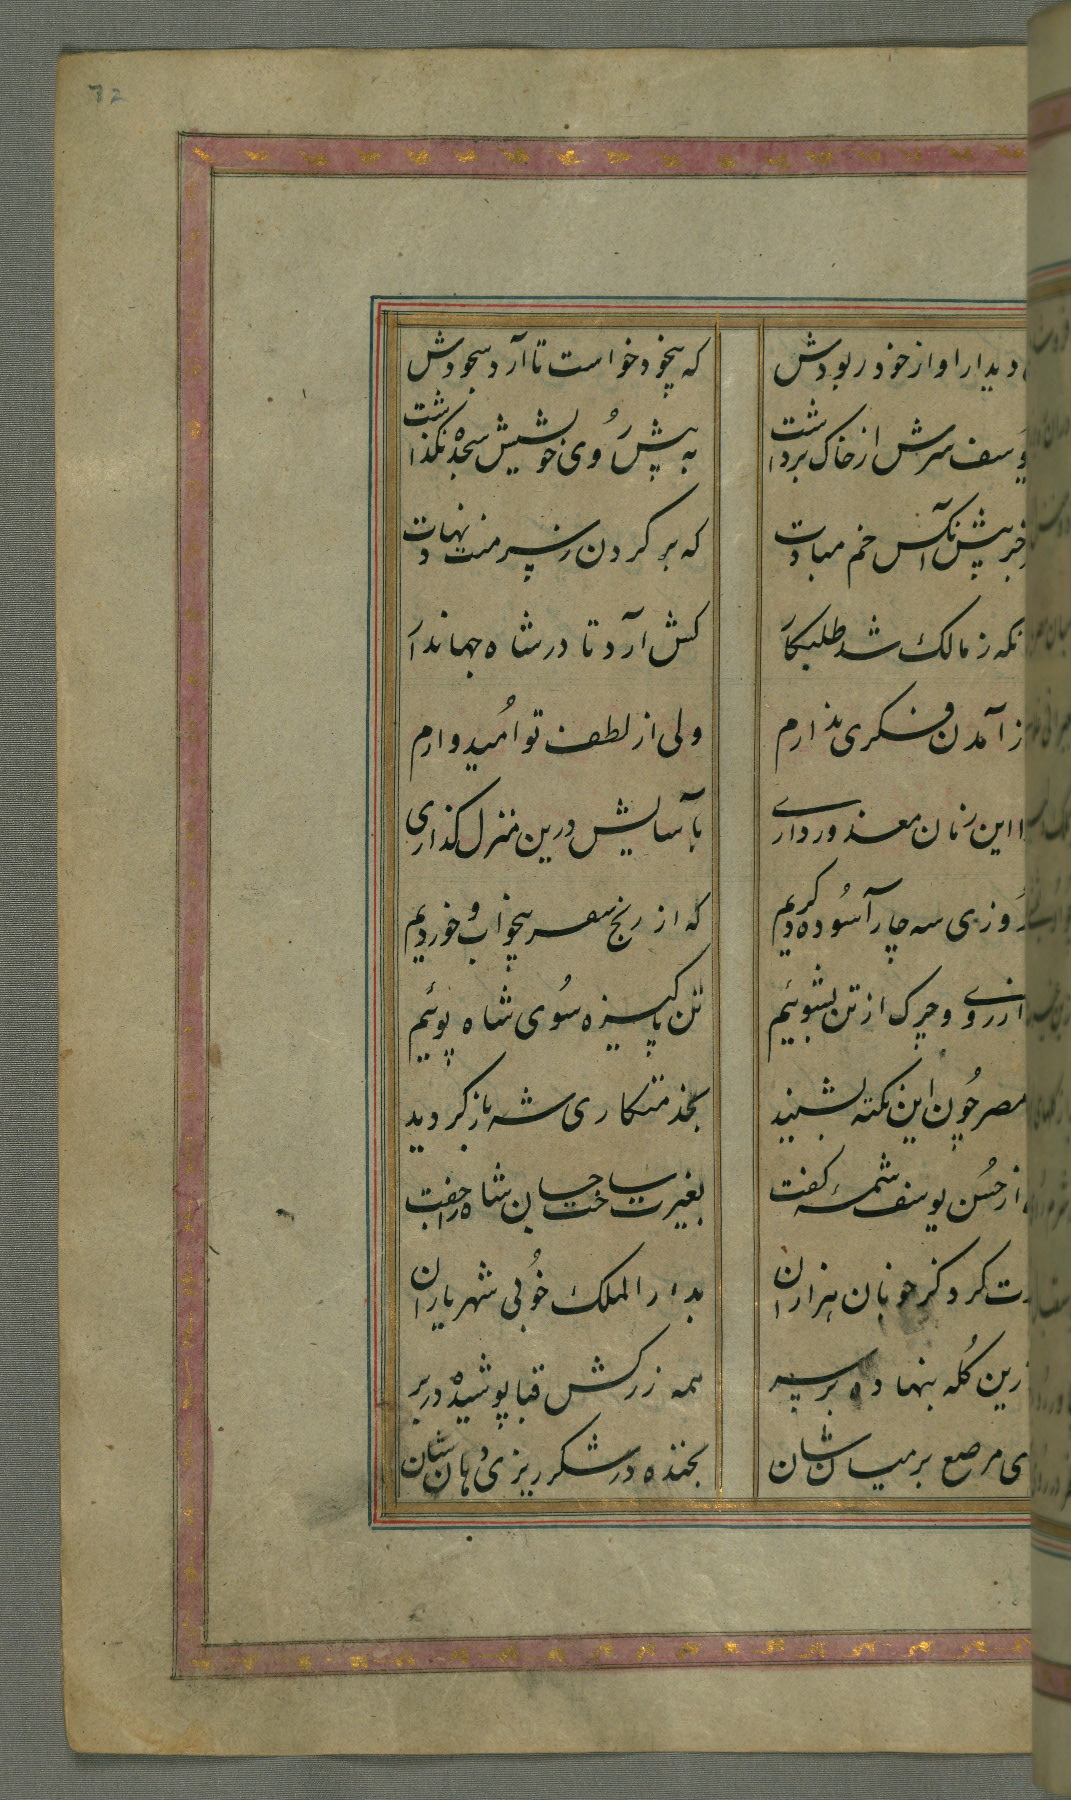 72
دیدار او از خود ربودش که بیخود خواست تا آرد سجودش
یوسف سرش از خاک برداشت به پیش روی خویشش سجده نگذاشت
خبر پیش آنکس خم مبادت که بر گردن ز سر منت نهادت
ز مالک شد طلبکار کش آرد تا در شاه جهاندار
ز آمدن فکری ندارم ولی از لطف تو امیدوارم
این زمان معذور داری بآسایش درین منزل گذاری
روزی سه چار آسوده گردیم که از رنج سفر بیخواب و خوردیم
از روی و چرک از تن بشوییم تن پاکیزه سوی شاه پوئیم
مصر چون این نکته بشنید بخدمتکاری شه باز گردید
از حسن یوسف شمهٔ گفت بغیرت ساخت جان شاه را جفت
کرد کز خوبان هزاران بدار الملک خوبی شهریاران
زرین کله بنهاده بر سر همه زرکش قبا پوشیده در بر
مرصع بر میان شان بخنده در شکر ریزی دهان شان